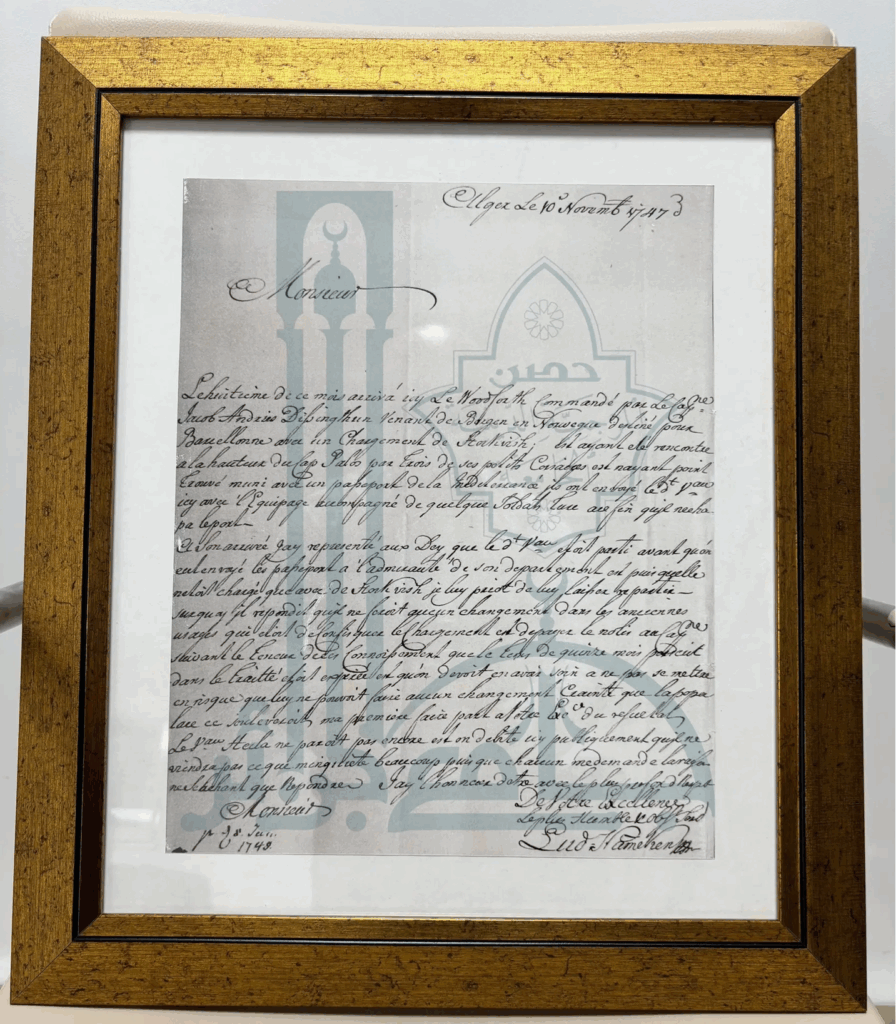 Alger Le 10.e Novemb 1747
Monsieur
حصين
Le huitieme de ce mois arrivá icy Le Woodforth Commandé par Le Capne
Jacob Andries venant de Bergen en Norwegue destiné pour
Barcellonne avec un Chargement de Stokvish; est ayant eté rencontre
a la hauteur du Cap Palos par trois de ses petits Corsaires est nayant point
trouvé muni avec un passeport de la Redevance ils ont envoyé le dt Vau
icy avec l'Equipage accompagné de quelque Soldats Turc
A Son arrivée Jay representé aux Dey que le dt Vau estoit parti avant qu'on
eut envoyé les passeport a l'admirauté de son departement et puis quelle
netoit chargé que avec de Stokvish je luy priois de luy laisser repartir
surquoy il repondit qu'il ne feroit aucun changement dans les anciennes
usages qui etoit de Confisquer le Chargement et de payer le nolis au Capne
suivant la teneur de les Connoissement que le tems de quinze mois
dans le traitte estoit expirée et qu'on devoit en avoir soin a ne pas se mettre
en risque que luy ne pouvoit faire aucun changement Crainte que la popu
lace ce souleveroit, ma premiere faira part a Votre Exce du
Le Vau Hecla ne paroit pas encore est on debite icy publiquement qu'il ne
viendra pas ce que minquiete beaucoup puis que chacun me demande la raison
ne Sachant que Repondre Jay l'honneur d'etre avec le plus profond
Monsieur
De Votre Excellence
Le plus Humble & Obst Servt
Lud Hameken
1748.